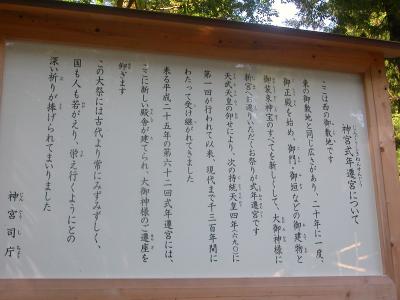 神宮式年遷宮について
ここは西の御敷地です
東の御敷地と同じ広さがあり、二十年に一度、
御正殿を始め、御門、御垣などの御建物と
御装束神宝のすべてを新しくして、大御神様に
新宮へお遷りいただくお祭りが式年遷宮です
天武天皇の御仕により、次の持統天皇四年(六九〇)に
第一回が行われて以来、現代まで千三百年間に
わたって受け継がれてきました
来る平成二十五年の第六十二回式年遷宮には、
ここに新しい殿舎が建てられ、大御神様のご遷座を
仰ぎます
この大祭には古代より常にみずみずしく、
国も人も若がえり、栄え行くようにとの
深い祈りが捧げられてまいりました
神宮司庁